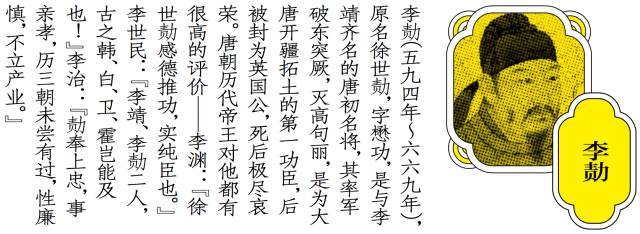 李勣
李勣(五九四年~六六九年),
原名徐世勣,字懋功,是与李
靖齐名的唐初名将,其率军
破东突厥,灭高句丽,是为大
唐开疆拓土的第一功臣,后
被封为英国公,死后极尽哀
荣。唐朝历代帝王对他都有
很高的评价——李渊:『徐
世勣感德推功,实纯臣也。』
李世民:『李靖、李勣二人,
古之韩、白、卫、霍岂能及
也!』李治:『勣奉上忠,事
亲孝,历三朝未尝有过,性廉
慎,不立产业。』